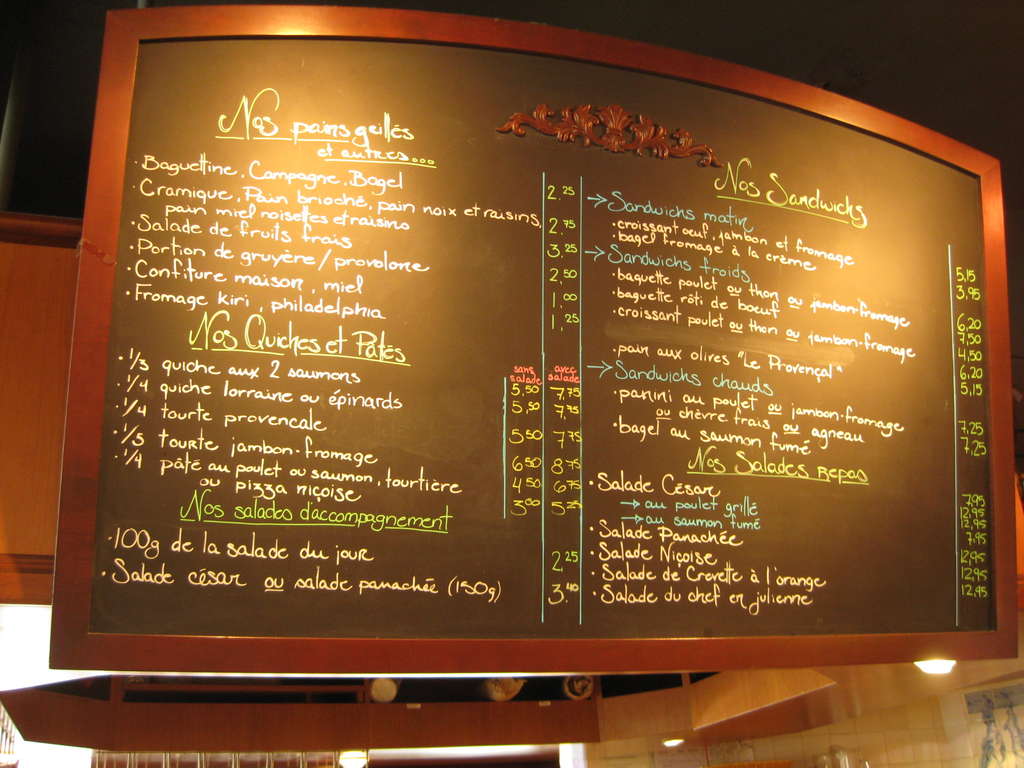 Nos pains grillés
et autres...
· Baguettine, Campagne, Bagel 2.25
· Cramique, Pain brioché, pain noix et raisins,
pain miel noisettes et raisins 2.75
· Salade de fruits frais 3.25
· Portion de gruyère/provolone 2,50
· Confiture maison, miel 1,00
· Fromage kiri, philadelphia 1,25
Nos Quiches et Pâtés
sans salade avec salade
· 1/3 quiche aux 2 saumons 5,50 7,75
· 1/4 quiche lorraine ou épinards 5,50 7,75
· 1/4 tourte provencale 5,50 7,75
· 1/3 tourte jambon-fromage 6,50 8,75
· 1/4 pâté au poulet ou saumon, tourtière 4,50 6,75
ou pizza niçoise 3,00 5,25
Nos salades d'accompagnement
· 100g de la salade du jour 2,25
· Salade césar ou salade panachée (150g) 3,40
Nos Sandwichs
→ Sandwichs matin
· croissant oeuf, jambon et fromage 5,15
· bagel fromage à la crème 3,95
→ Sandwichs froids
· baguette poulet ou thon ou jambon-fromage 6,20
· baguette rôti de boeuf 7,50
· croissant poulet ou thon ou jambon-fromage 4,50
6,20
· pain aux olives "Le Provençal" 5,15
→ Sandwichs chauds
· panini au poulet ou jambon-fromage
ou chèvre frais ou agneau 7,25
· bagel au saumon fumé 7,25
Nos Salades Repas
· Salade César 7,95
→ au poulet grillé 12,95
→ au saumon fumé 12,95
· Salade Panachée 7,95
· Salade Niçoise 12,95
· Salade de Crevette à l'orange 12,95
· Salade du chef en julienne 12,95